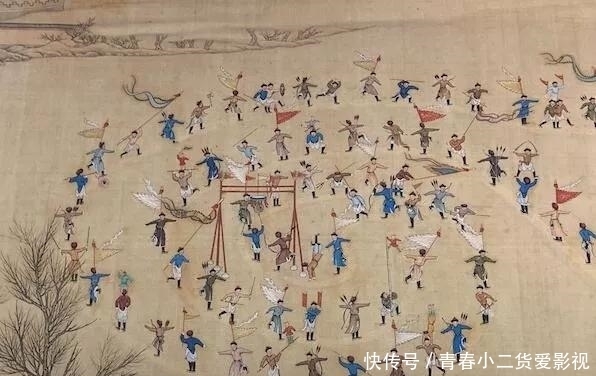 快传号/青春小二货爱影视